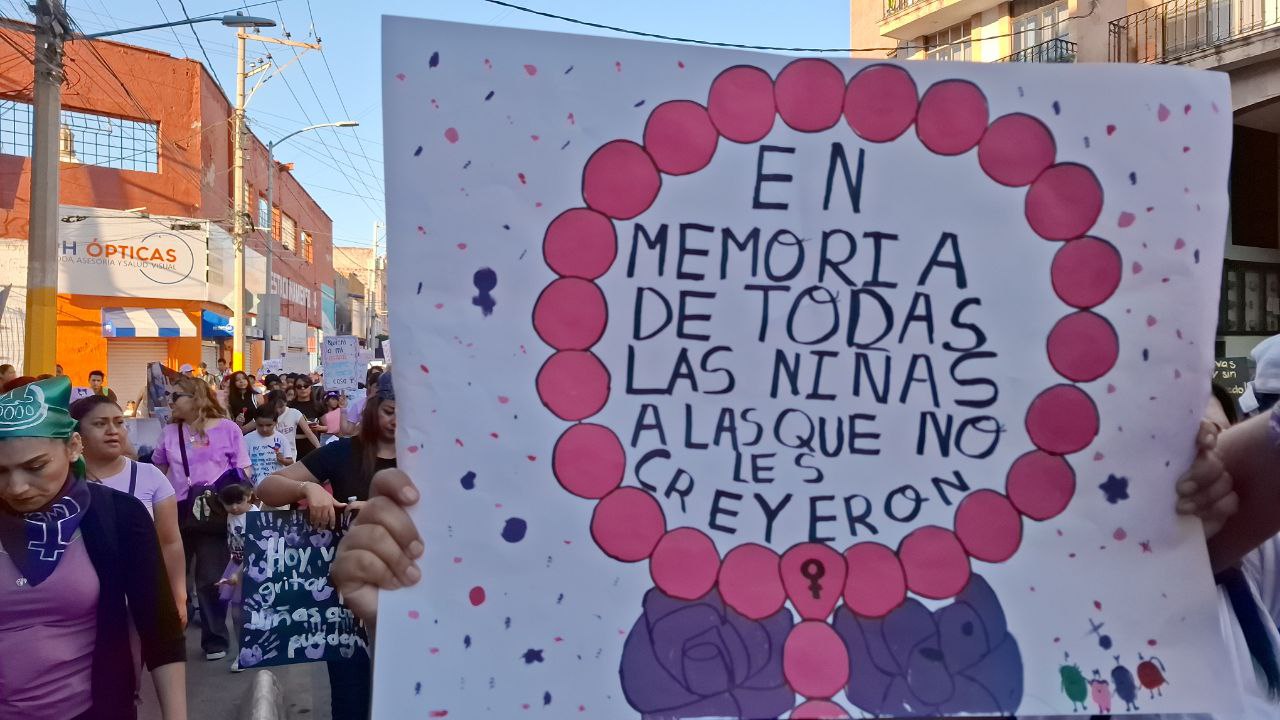 EN
MEMORIA
DE TODAS
LAS NIÑAS
A LAS QUE NO
LES
CREYERON
H ÓPTICAS
ODA, ASESORÍA Y SALUD VISUAL
ESTACIONAMIENTO
Hoy v
gritar
niñas que
pueden